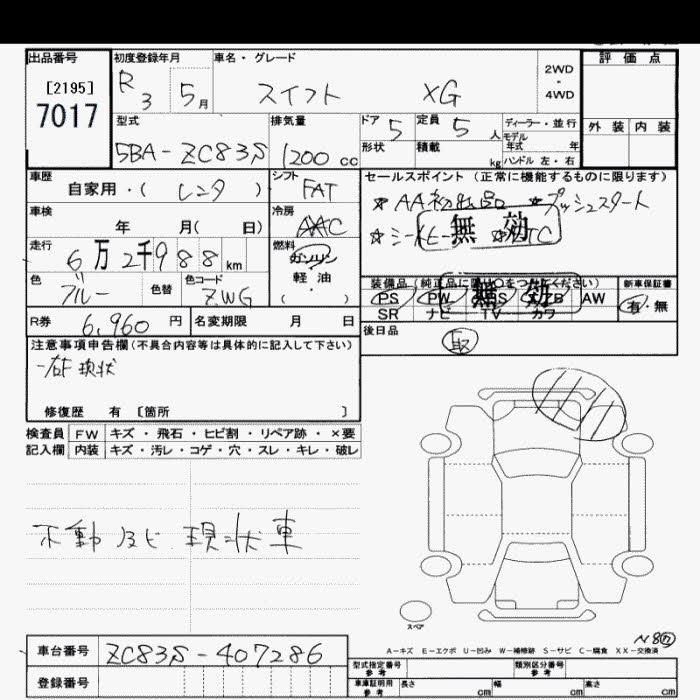 出品番号
[2195]
7017
初度登録年月
R 3 5 月
車名・グレード
スイフト XG
2WD
・
4WD
評価点
外装 内装
型式
5BA-ZC83S
排気量
1200 cc
ドア 5
定員 5 人
形状
積載 kg
ディーラー・並行
モデル
年式 年
ハンドル 左・右
車歴
自家用・( レンタ )
シフト
FAT
車検
年 月( 日)
冷房
AAC
走行
6万2千988 km
燃料
ガソリン
軽・油
( ・ )
色
ブルー
色替
色コード
ZWG
セールスポイント (正常に機能するものに限ります)
☆AA初出品 ☆プッシュスタート
無効
装備品
無効
PS PW AW
SR ナビ TV カワ
新車保証書
有・無
R券 6,960 円
名変期限 月 日
後日品
取
注意事項申告欄(不具合内容等は具体的に記入して下さい)
現状
修復歴 有 [箇所 ]
検査員 FW キズ・飛石・ヒビ割・リペア跡・×要
記入欄 内装 キズ・汚レ・コゲ・穴・スレ・キレ・破レ
不動及ビ 現状車
スペア
A-キズ E-エクボ U-凹み W-補修跡 S-サビ C-腐食 XX-交換済
車台番号 ZC83S-407286
登録番号
型式指定番号
参考
類別区分番号
参考
車庫証明用
参考
長さ cm
幅 cm
高さ cm